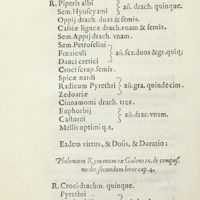 R. Piperis albi
Sem. Hyoscyami } añ. drach. quinque.
Opij drach. duas & semis.
Casiæ ligneæ drach. vnam & semis.
Sem. Appij drach. vnam.
Sem. Petroselini
Fœniculi } añ. scr. duos & gr. quinq;
Dauci cretici
Croci scrup. semis.
Spicæ nardi
Radicum Pyrethri } añ. gra. quindecim.
Zedoariæ
Cinnamomi drach. tres.
Euphorbij
Castorei } añ. drac. vnam.
Mellis optimi q. s.
Eadem virtus, & Dosis, & Duratio:
Philonium Romanum ex Galeno ix. de compos.
medic. secundum locos cap. 4.
R. Croci drachm. quinque.
Pyrethri